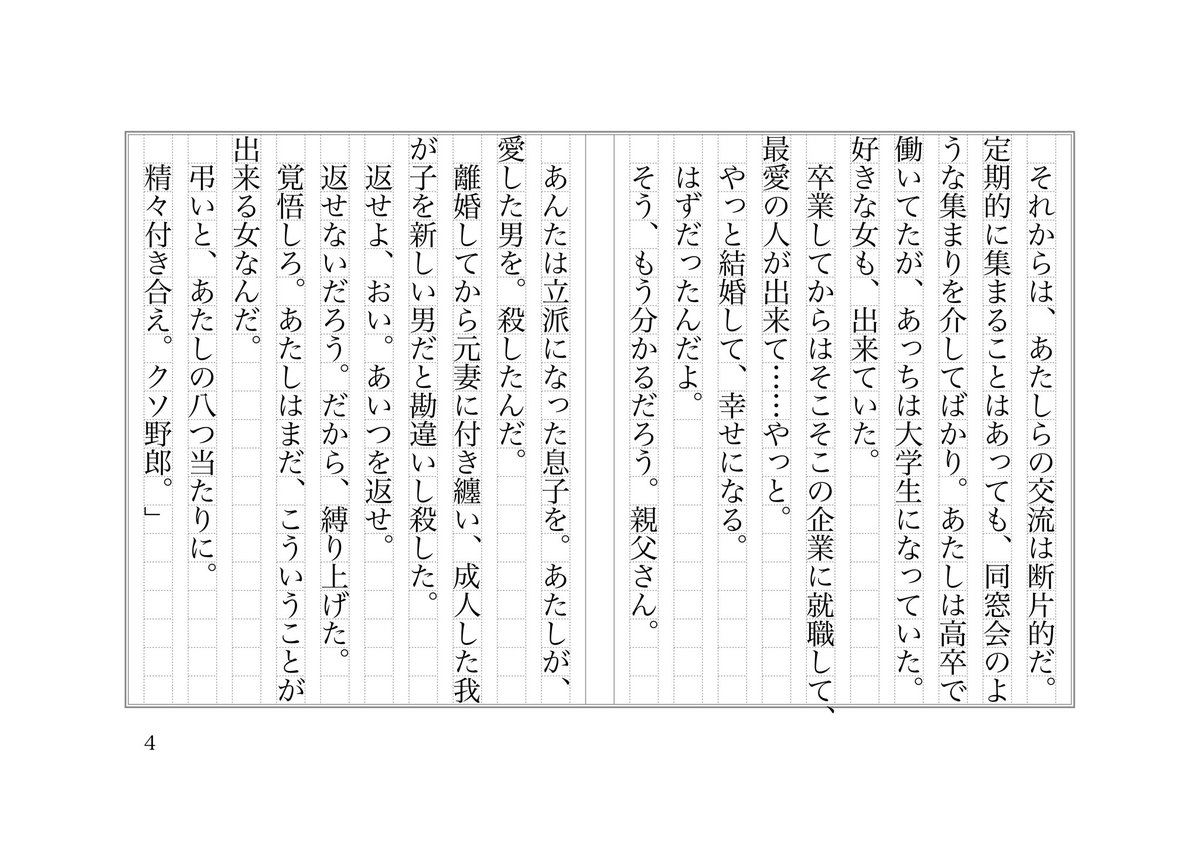 それからは、あたしらの交流は断片的だ。
定期的に集まることはあっても、同窓会のよ
うな集まりを介してばかり。あたしは高卒で
働いてたが、あっちは大学生になっていた。
好きな女も、出来ていた。
　卒業してからはそこそこの企業に就職して、
最愛の人が出来て……やっと。
　やっと結婚して、幸せになる。
　はずだったんだよ。
　そう、もう分かるだろう。親父さん。
　あんたは立派になった息子を。あたしが、
愛した男を。殺したんだ。
　離婚してから元妻に付き纏い、成人した我
が子を新しい男だと勘違いし殺した。
　返せよ、おい。あいつを返せ。
　返せないだろう。だから、縛り上げた。
　覚悟しろ。あたしはまだ、こういうことが
出来る女なんだ。
　弔いと、あたしの八つ当たりに。
　精々付き合え。クソ野郎。」
4